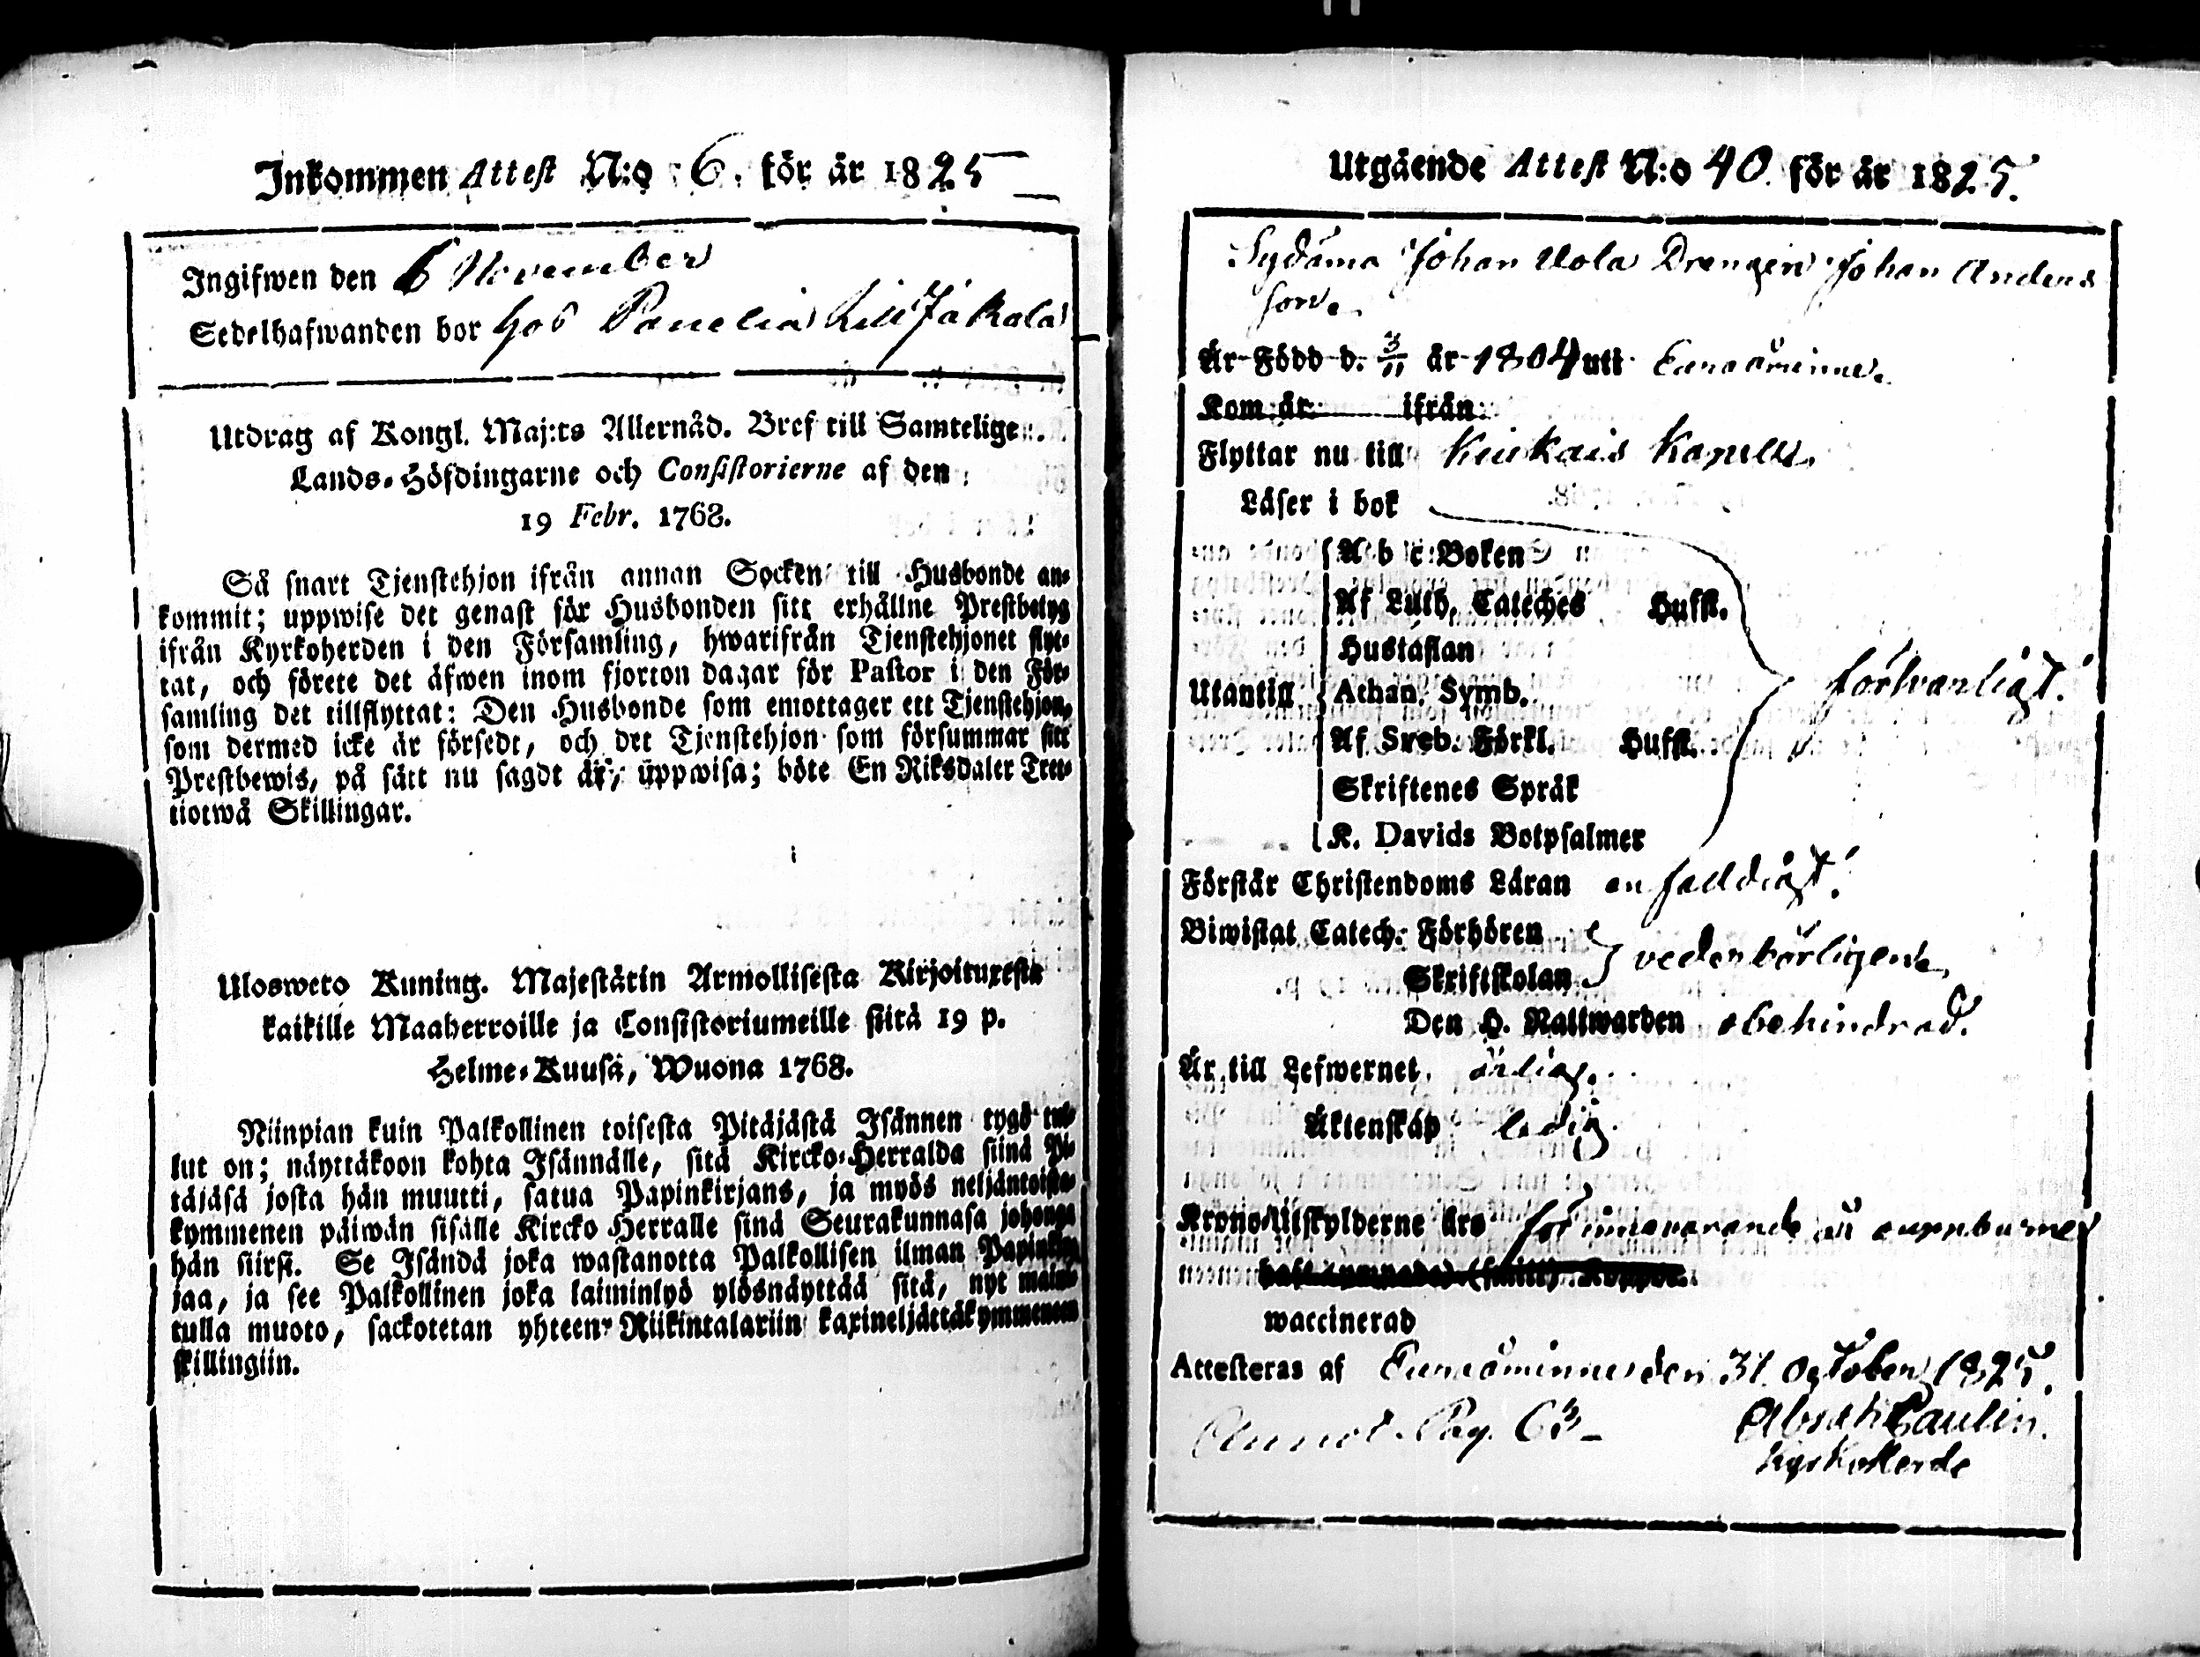 Inkommen Attest N:o 6. för år 1825
Ingifwen den 6 November
Sedelhafwanden bor hos Panelia Lill Jakala
Utdrag af Kongl. Maj:ts Allernåd. Bref till Samtelige
Lands-Höfdingarne och Consistorierne af den
19 Febr. 1768.
Så snart Tjenstehjon ifrån annan Socken till Husbonde an-
kommit; uppwise det genast för Husbonden sitt erhållne Prestbetyg
ifrån Kyrkoherden i den Församling, hwarifrån Tjenstehjonet flyt-
tat, och förete det äfwen inom fjorton dagar för Pastor i den För-
samling det tillflyttat: Den Husbonde som emottager ett Tjenstehjon,
som dermed icke är försedt, och det Tjenstehjon som försummar sitt
Prestbewis, på sätt nu sagdt är, uppwisa; böte En Riksdaler Tret-
tiotwå Skillingar.
Ulosweto Kuning. Majestätin Armollisesta Kirjoituxesta
kaikille Maaherroille ja Consistoriumeille siitä 19 p.
Helme-Kuusa, Wuona 1768.
Niinpian kuin Palkollinen toisesta Pitäjästä Isännen tygö tul-
lut on; näyttäkoon kohta Isännälle, sitä Kircko-Herralda siinä Pi-
täjäsä josta hän muutti, satua Papinkirjans, ja myös neljäntoista-
kymmenen päiwän sisälle Kircko Herralle sinä Seurakunnasa johonga
hän siirsi. Se Isändä joka wastanotta Palkollisen ilman Papinkir-
jaa, ja see Palkollinen joka laiminlyö ylösnäyttää sitä, nyt maini-
tulla muoto, sackotetan yhteen Riikintalariin kaxineljättäkymmeneen
skillingiin.
Utgående Attest N:o 40. för år 1825.
Sydama Johan Uola Drengen Johan Anders
son.
Är Född d. 3/11 år 1804 uti Euraåminne.
Kom år ifrån
Flyttar nu till Kiukais Kapell.
Läser i bok
A b c Boken
Af Luth. Cateches Hufst.
Hustaflan
Utantill Athan. Symb. försvarligt.
Af Sveb. Förkl. Hufst.
Skriftenes Språk
K. Davids Botpsalmer
Förstår Christendoms Läran enfalldigt.
Biwistat Catech. Förhören
Skriftskolan vederbörligen
Den H. Nattwarden obehindrad.
Är till Lefwernet ärlig.
Äktenskap ledig.
Krono Utskylderne äro för innevarande år uppburne
waccinerad
Attesteras af Euraåminne den 31 October 1825.
Annot. Pag. 63
Abrah Paulin.
Kyrkoherde